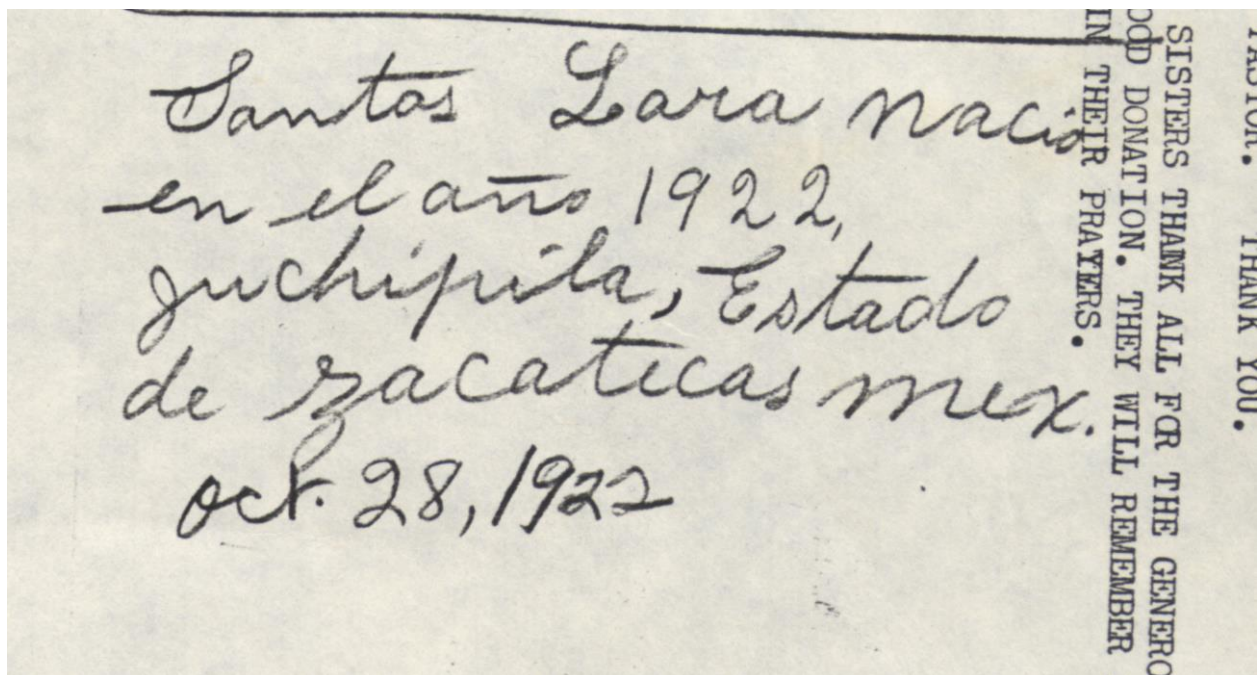 Santos Lara nació
en el año 1922,
juchipila, Estado
de zacatecas mex.
oct. 28, 1922
THANK YOU.
SISTERS THANK ALL FOR THE GENERO
OOD DONATION. THEY WILL REMEMBER
IN THEIR PRAYERS.